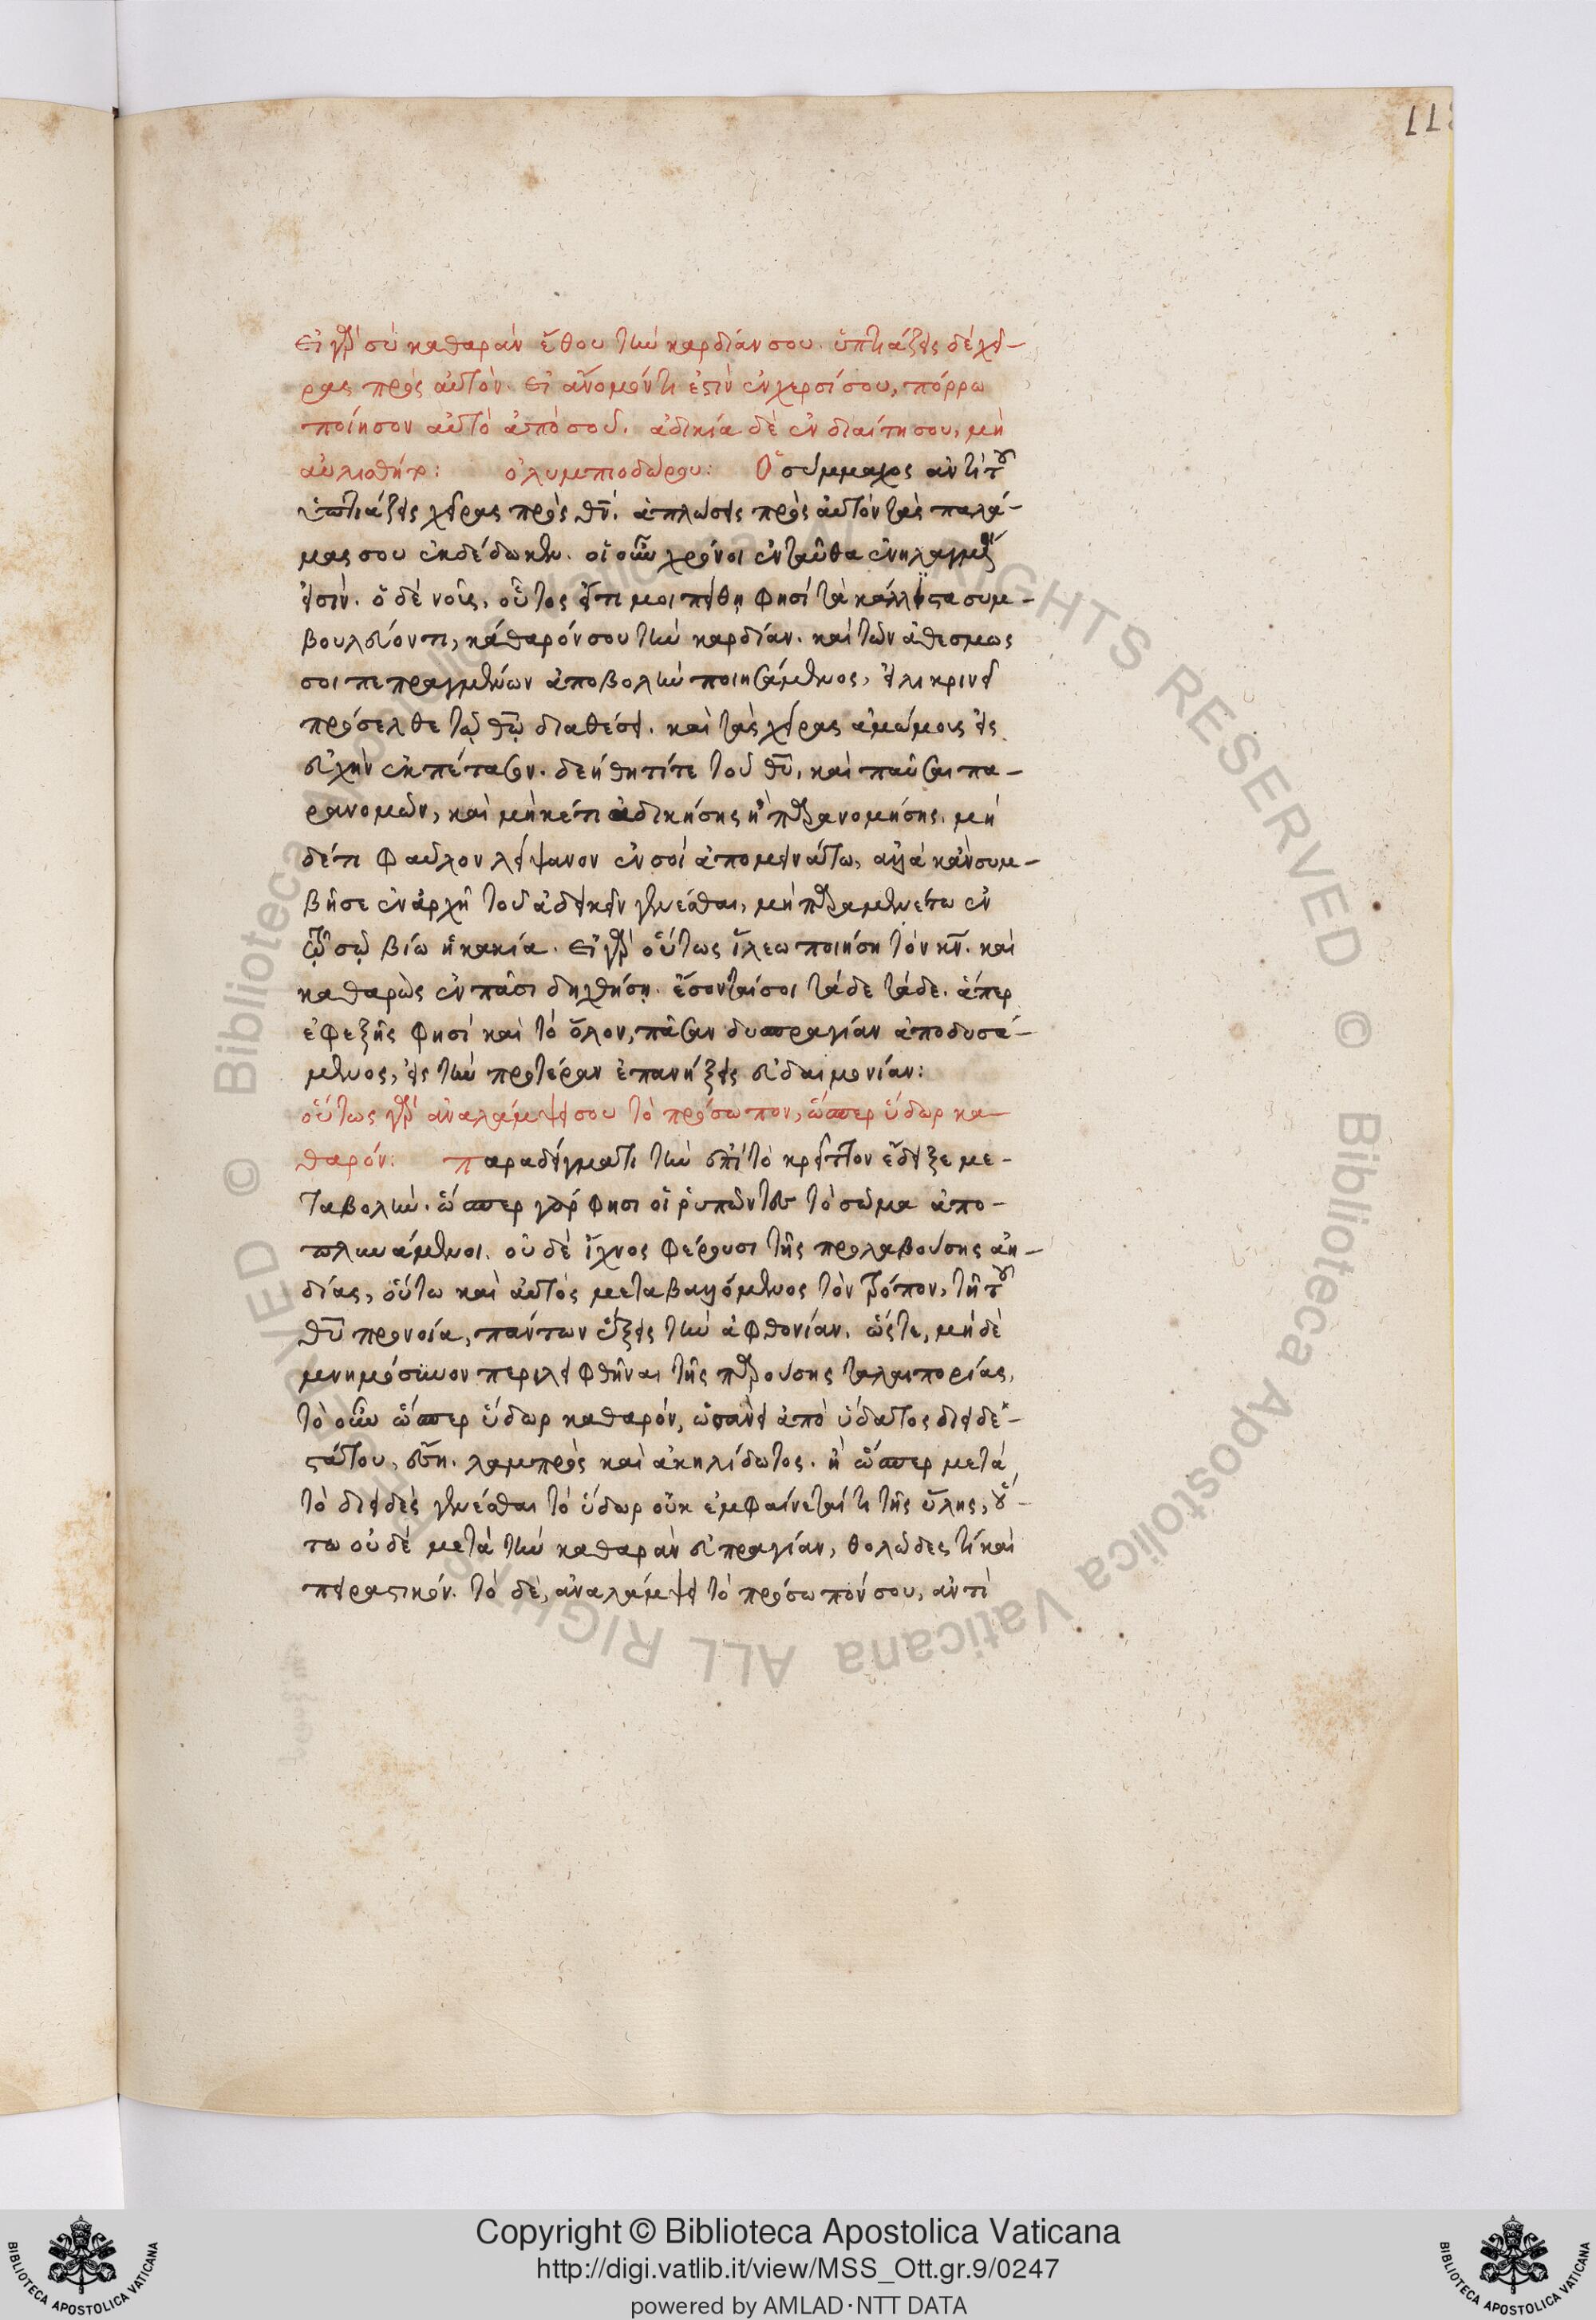 11
εἰ γὰρ σὺ καθαρὰν ἔθου τὴν καρδίαν σου. ὑπτιάζεις δὲ χεῖ-
ρας πρὸς αὐτὸν. εἰ ἄνομόν τι ἐστὶν ἐν χερσί σου, πόρρω
ποίησον αὐτὸ ἀπὸ σοῦ. ἀδικία δὲ ἐν διαίτη σου, μὴ
αὐλισθήτω: ὀλυμπιοδώρου: Ὁ σύμμαχος ἀντὶ τοῦ
ὑπτιάζεις χεῖρας πρὸς θν. ἁπλώσεις πρὸς αὐτὸν τὰς παλά-
μας σου ἐκδέδωκεν. οἱ οὖν χρόνοι ἐνταῦθα ἐνηλαγμένοι
εἰσὶν. ὁ δὲ νοῦς, οὗτος εἴ τι μοι πείθη φησὶ τὰ κάλλιστα συμ-
βουλεύοντι, κάθαρόν σου τὴν καρδίαν. καὶ τῶν ἀθέσμως
σοι πεπραγμένων ἀποβολὴν ποιησάμενος, εἰλικρινεῖ
πρόσελθε τῷ θῷ διαθέσει. καὶ τὰς χεῖρας ἀμώμοις εἰς
εὐχὴν ἐκπέτασον. δεήθητί τε τοῦ θυ, καὶ παῦσαι πα-
ρανομῶν, καὶ μηκέτι ἀδικήσης ἢ παρανομήσης. μη
δέ τι φαῦλον λείψανον ἐν σοὶ ἀπομεινάτω, ἀλλὰ κἂν συμ-
βῆ σε ἐν ἀρχῆ τοῦ ἀδικεῖν γενέσθαι, μὴ παραμενέτω ἐν
τῷ σῷ βίω ἡ κακία. εἰ γὰρ οὕτως ἵλεω ποιήση τὸν κν. καὶ
καθαρὸς ἐν πᾶσι δηχθήση. ἔσονταί σοι τάδε τάδε. ἅπερ
ἐφεξῆς φησὶ καὶ τὸ ὅλον, πᾶσαν δυσπραγίαν ἀποδυσά-
μενος, εἰς τὴν προτέραν ἐπανήξεις εὐδαιμονίαν:
οὕτως γὰρ ἀναλάμψει σου τὸ πρόσωπον, ὥσπερ ὕδωρ κα-
θαρόν: παραδείγματι τὴν ἐπὶ τὸ κρεῖττον ἔδειξε με-
ταβολὴν. ὥσπερ γάρ φησι οἱ ῥυπῶντες τὸ σῶμα ἀπο-
πλυνάμενοι. οὐδὲ ἴχνος φέρουσι τῆς προλαβούσης ἀη-
δίας, οὕτω καὶ αὐτὸς μεταβαλλόμενος τὸν τρόπον, τῆ τοῦ
θυ προνοία, πάντων ἕξεις τὴν ἀφθονίαν. ὥστε, μηδὲ
μνημόσυνον περιλειφθῆναι τῆς παρούσης ταλαιπορίας.
τὸ οὖν ὥσπερ ὕδωρ καθαρόν, ὡσανεὶ ἀπὸ ὕδατος διειδε-
στάτου, ἔση. λαμπρὸς καὶ ἀκηλίδωτος. ἢ ὥσπερ μετὰ
τὸ διειδὲς γενέσθαι τὸ ὕδωρ οὐκ ἐμφαίνεταί τι τῆς ὕλης, οὕ-
τω οὐδὲ μετὰ τὴν καθαρὰν εὐπραγίαν, θολῶδες τί καὶ
πειραστικόν. τὸ δὲ, ἀναλάμψει τὸ πρόσωπόν σου, ἀντὶ
Copyright © Biblioteca Apostolica Vaticana
http://digi.vatlib.it/view/MSS_Ott.gr.9/0247
powered by AMLAD·NTT DATA
BIBLIOTECA APOSTOLICA VATICANA
BIBLIOTECA APOSTOLICA VATICANA
© Biblioteca Apostolica Vaticana ALL RIGHTS RESERVED © Biblioteca Apostolica Vaticana ALL RIGHTS RESERVED